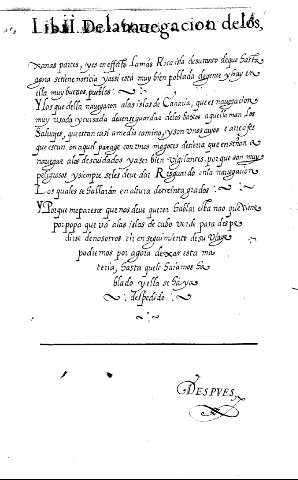 Lib.II. De la nauegacion de los,
uanas partes, y es en effecto la más Rica isla de su ranto de que hasta
agora se tiene noticia y assi está muy bien poblada de gente y hay en
ella muy buenos pueblos
Y Los que della nauegan a las islas de Canaria, que es nauegacion
muy usada y cursada deuen guardar de los baxos a que llaman los
Saluajes, que estan casi a medio camino, y son unos cayos e arracifes
que estan en aquel parage con unos mogotes deuería que enseñan a
nauegar a los descuidados ya ser bien vigilantes, porque son muy
peligrosos y siempre se les deue dar Resguardo en la nauegacion
Los quales se hallarán en altura de treinta grados
Y Porque me parece que nos deue querer hablar esta nao que viene
por popa que vá a las islas de cabo verde para despe
dirse de nosotros en seguimiento de su via
podremos por agora dexar esta ma
teria, hasta que le hayamos ha
blado y ella se haya
despedido
DESPVES,